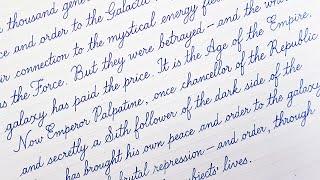 thousand gene
ce and order to the Galactic
ir connection to the mystical energy fie
as the Force. But they were betrayed – and the who
galaxy has paid the price. It is the Age of the Empire.
Now Emperor Palpatine, once chancellor of the Republic
and secretly a Sith follower of the dark side of the
has brought his own peace and order to the galaxy
brutal repression – and order, through
bjects' lives.